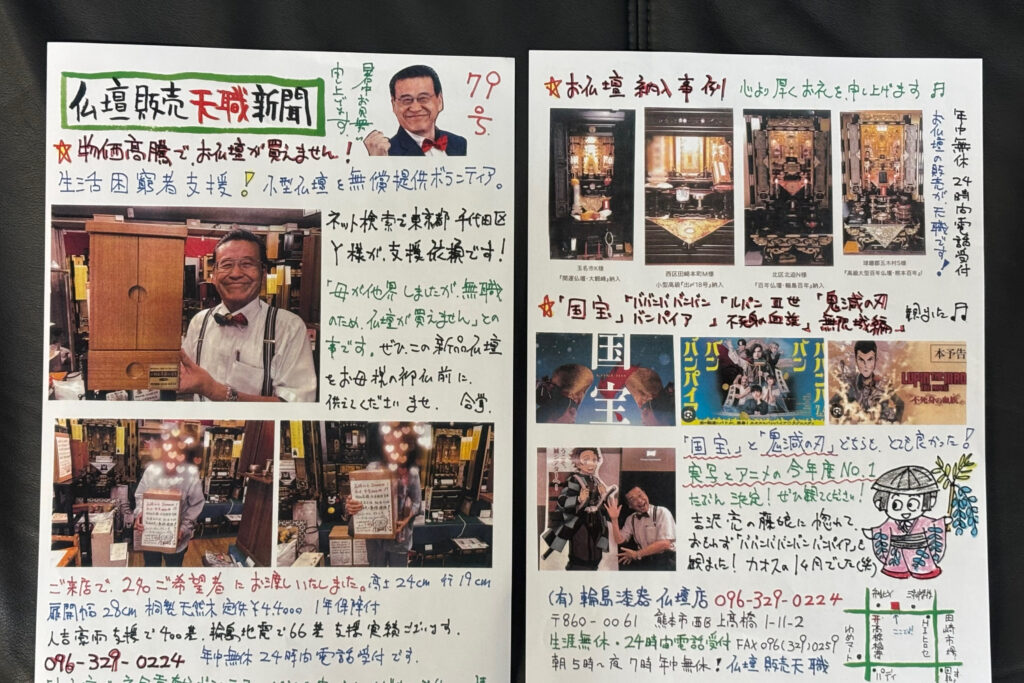 仏壇販売天職新聞
暑中お見舞い
申し上げます。
79号
☆物価高騰で、お仏壇が買えません!
生活困窮者支援!小型仏壇を無償提供ボランティア。
ネット検索で東京都千代田区
Y様が、支援依頼です!
「母が他界しましたが、無職
のため、仏壇が買えません」との
事です。ぜひこの新品仏壇
をお母様の御仏前に、
供えてくださいませ。合掌。
ご来店で、2名ご希望者にお渡しいたしました。高さ24cm 行19cm
扉開幅28cm 桐製天然木 定価¥44000 1年保障付
人吉豪雨支援で400基、輪島地震で66基支援実績ございます。
096-329-0224 年中無休24時間電話受付です。
☆お仏壇納入事例 心より厚くお礼を申し上げます♫
年中無休24時間電話受付
お仏壇の販売が、天職です!
玉名市K様
『開運仏壇・大鶴峰』納入
西区田崎本町M様
小型高級『出〆18号』納入
北区北迫N様
『百年仏壇・輪島百年』納入
球磨郡五木村S様
『高級大型百年仏壇・熊本百年』納入
☆「国宝」「ババンババンバンバンパイア」「ルパン三世 不死身の血族」「鬼滅の刃 無限城編」観ました♫
国宝
バババンバンバンパイア
本予告
不死身の血族
「国宝」と「鬼滅の刃」どちらも、とても良かった!
実写とアニメの今年度No.1
たぶん決定!ぜひ観てください!
吉沢亮の藤娘に惚れて、
おもわず「ババンババンバンバンパイア」も
観ました!カオスの1ヶ月でした(笑)
(有)輪島漆器仏壇店 096-329-0224
〒860-0061 熊本市西区上高橋1-11-2
生涯無休・24時間電話受付 FAX 096(329)0259
朝5時〜夜7時 年中無休!仏壇販売天職
ここだよ
田崎市場
ゆめマート